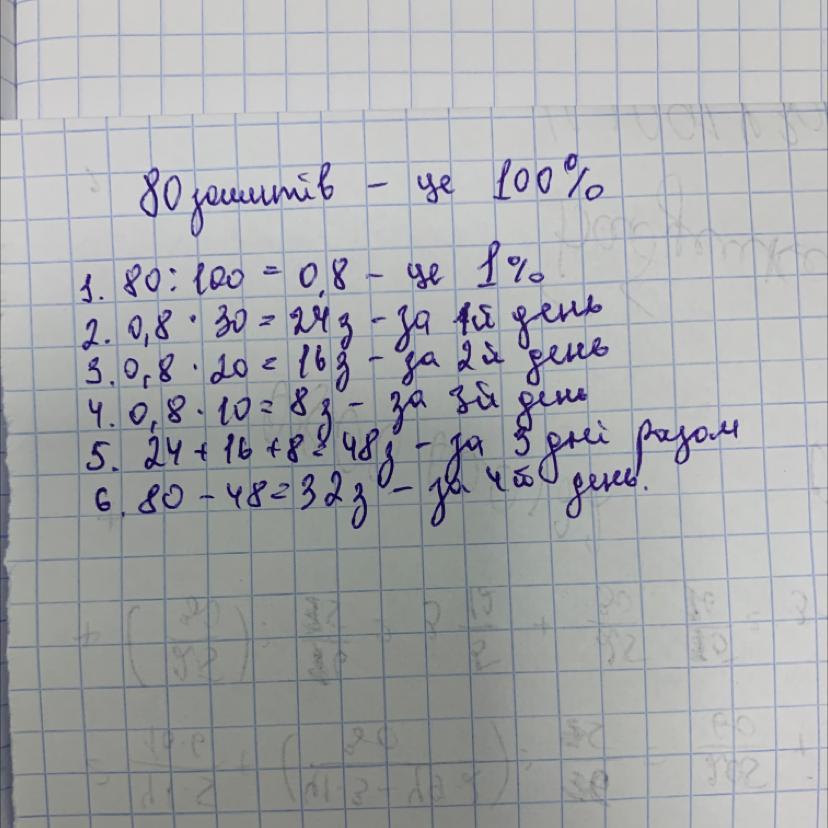 80 зошитів – це 100%
1. 80 : 100 = 0,8 – це 1%
2. 0,8 · 30 = 24з – за 1й день
3. 0,8 · 20 = 16з – за 2й день
4. 0,8 · 10 = 8з – за 3й день
5. 24 + 16 + 8 = 48з – за 3 дні разом
6. 80 – 48 = 32з – за 4й день.